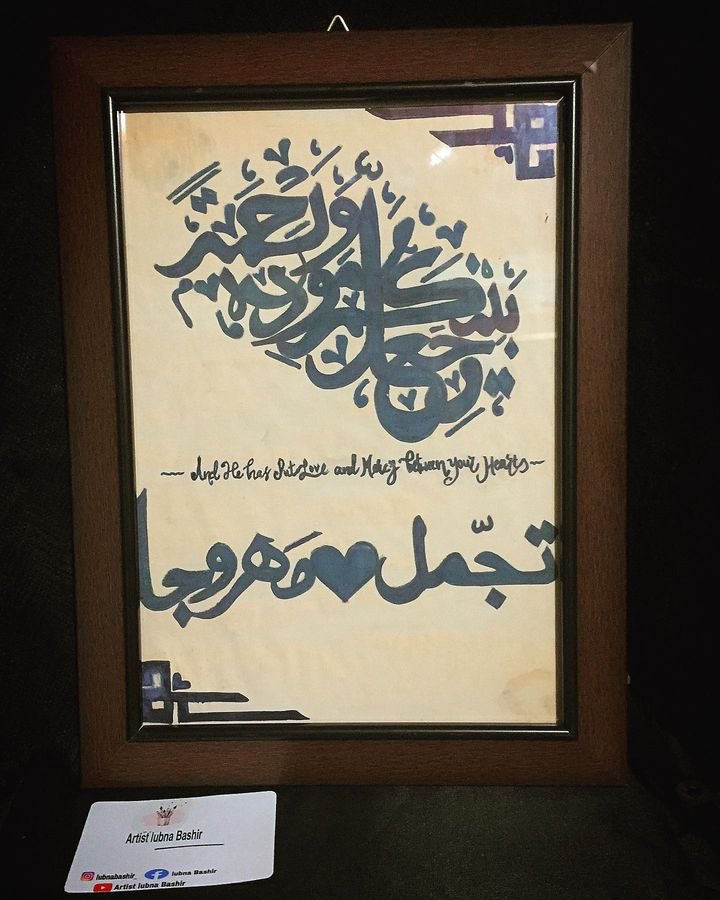 وجعل بينكم مودة ورحمة
~ And He has Put Love and Mercy between your Hearts ~
تجمّل ♥ مَهروجا
Artist lubna Bashir
lubnabashir_ lubna Bashir
Artist lubna Bashir